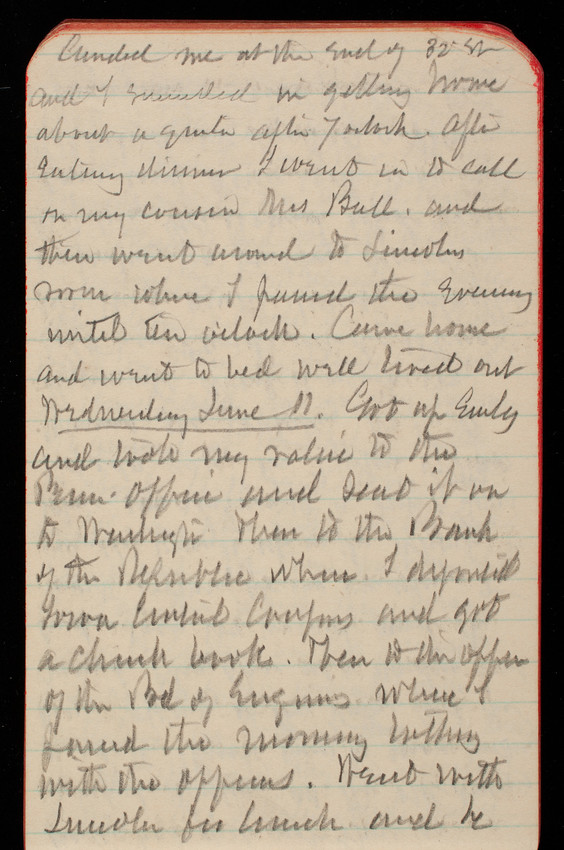 landed me at the End of 32 St
and I succeeded in getting home
about a quarter after 7 oclock. After
Eating dinner I went in to call
on my cousin Mrs Ball. and
then went around to Lincolns
room where I passed the Evening
until ten oclock. Came home
and went to bed well tired out
Wednesday June 11. Got up Early
and took my valise to the
Penn. office and sent it on
to then to the Bank
of the Republic where I deposited
Iowa Central Coupons and got
a check book. Then to the office
of the Bd of Engineers where I
passed the morning talking
with the officers. Went with
Lincoln for lunch and he